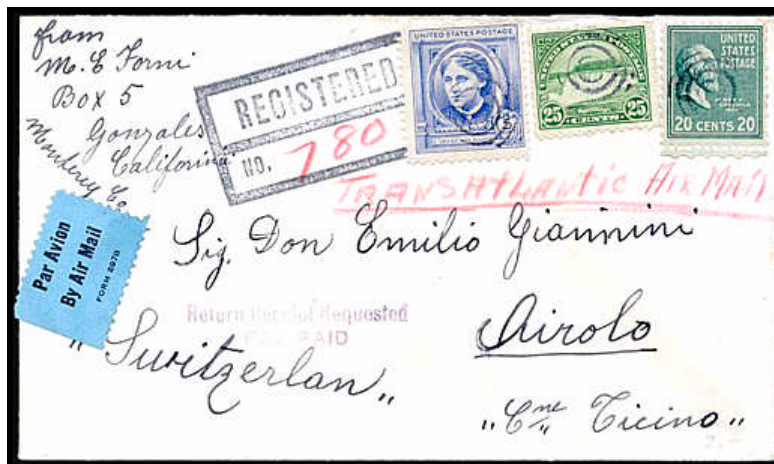 from
M. E Forni
Box 5
Gonzales
California
Monterey Co
REGISTERED
NO. 780
UNITED STATES POSTAGE
25 25
CENTS
UNITED
STATES
POSTAGE
20 CENTS 20
TRANSATLANTIC AIR MAIL
Par Avion
By Air Mail
FORM 2978
Sig. Don Emilio Giannini
Return Receipt Requested
PAID
Airolo
"Switzerlan"
"Cne Ticino"